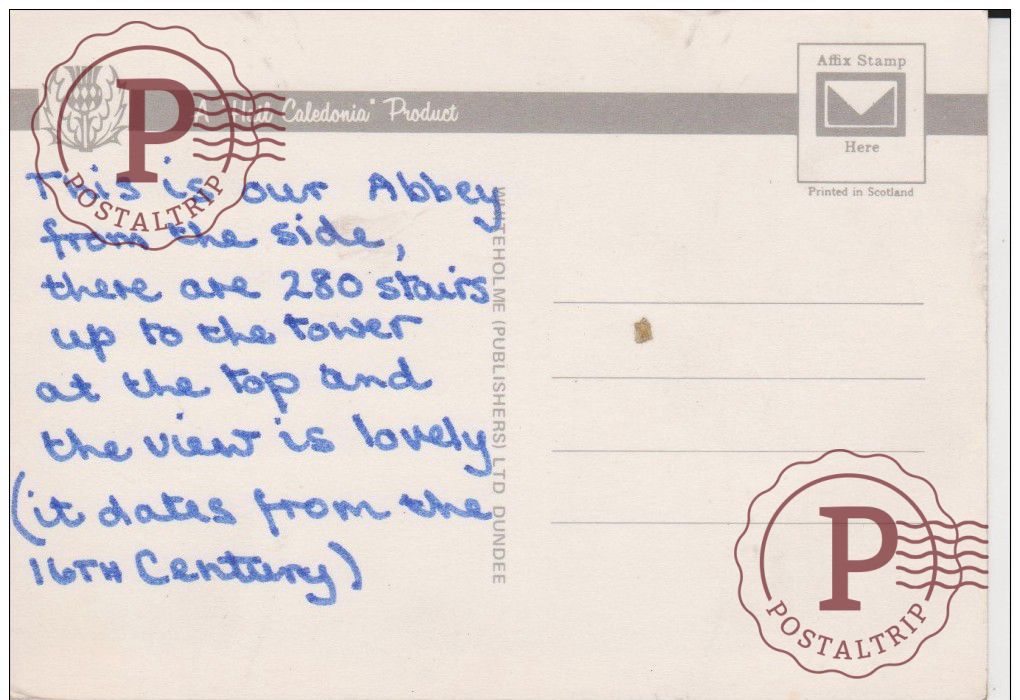 A "Hail Caledonia" Product
Affix Stamp
Here
Printed in Scotland
This is our Abbey
from the side,
there are 280 stairs
up to the tower
at the top and
the view is lovely
(it dates from the
16TH Century)
WHITEHOLME (PUBLISHERS) LTD DUNDEE
P
POSTALTRIP
P
POSTALTRIP